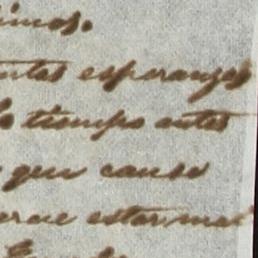 imos.
ntas esperanzas
tiempo antes
que cause
estar mal